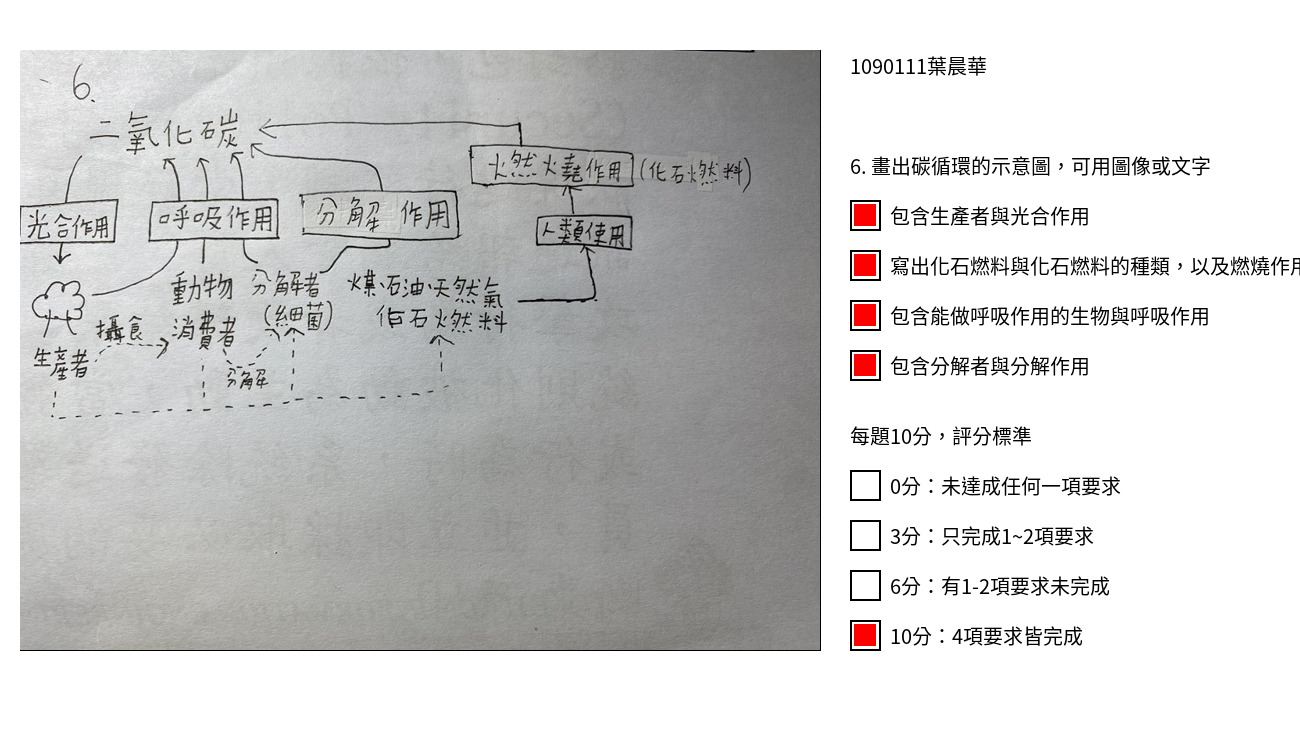 6.
二氧化碳
燃燒作用(化石燃料)
光合作用
呼吸作用
分解作用
人類使用
動物
消費者
分解者
(細菌)
煤石油天然氣
化石燃料
攝食
生產者
分解
1090111葉晨華
6. 畫出碳循環的示意圖，可用圖像或文字
包含生產者與光合作用
寫出化石燃料與化石燃料的種類，以及燃燒作用
包含能做呼吸作用的生物與呼吸作用
包含分解者與分解作用
每題10分，評分標準
0分：未達成任何一項要求
3分：只完成1~2項要求
6分：有1-2項要求未完成
10分：4項要求皆完成